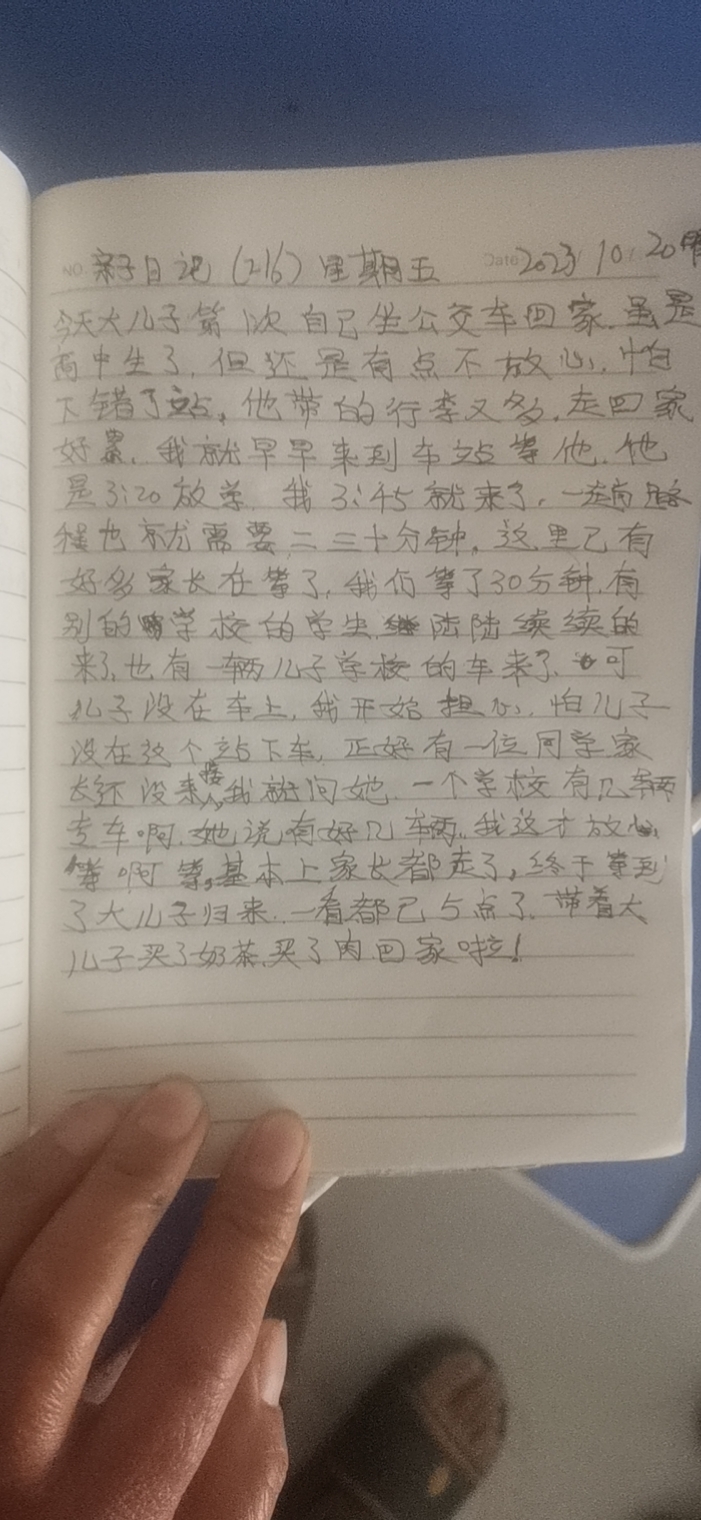 NO. 亲子日记（216）星期五 Date 2023/10/20晴
今天大儿子第1次自己坐公交车回家.虽是
高中生了,但还是有点不放心,怕
下错了站,他带的行李又多,走回家
好累,我就早早来到车站等他.他
是3:20放学.我3:45就来了,一趟路
程也就需要二三十分钟,这里已有
好多家长在等了,我们等了30分钟.有
别的学校的学生陆陆续续的
来了,也有一辆儿子学校的车来了,可
儿子没在车上,我开始担心,怕儿子
没在这个站下车,正好有一位同学家
长还没来接人,我就问她.一个学校有几辆
专车啊.她说有好几辆.我这才放心,
等啊等,基本上家长都走了,终于等到
了大儿子归来.一看都已5点了.带着大
儿子买了奶茶.买了肉回家啦!